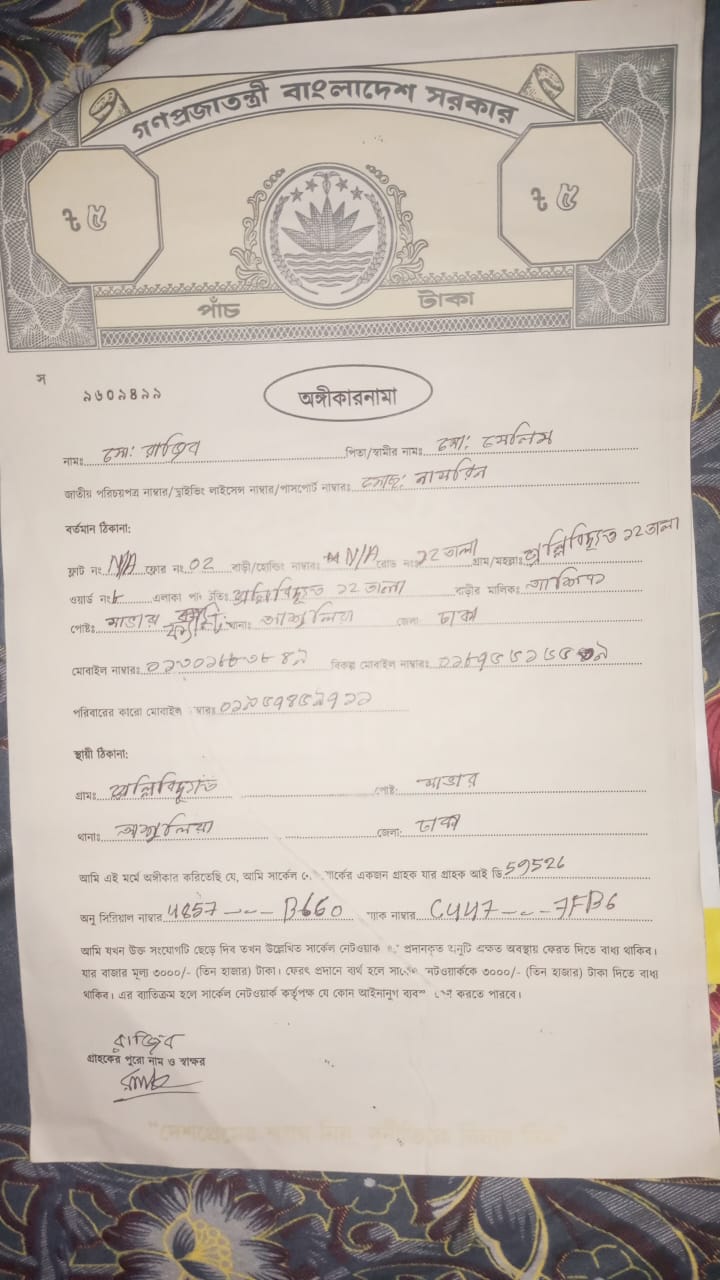 গণপ্রজাতন্ত্রী বাংলাদেশ সরকার
৳ ৫ ৳ ৫
পাঁচ টাকা
স
৯৬০৯৪৯৯
অঙ্গীকারনামা
নামঃ মো: রাজিব পিতা/স্বামীর নামঃ মো: সেলিম
জাতীয় পরিচয়পত্র নাম্বার/ড্রাইভিং লাইসেন্স নাম্বার/পাসপোর্ট নাম্বারঃ
বর্তমান ঠিকানা:
ফ্লাট নং N/A ফ্লোর নং 02 বাড়ী/হোল্ডিং নাম্বারঃ N/A রোড নং ১২ তালা গ্রাম/মহল্লাঃ পল্লিবিদ্যুত ১২ তালা
ওয়ার্ড নং এলাকা পল্লিবিদ্যুত ১২ তালা বাড়ীর মালিকঃ
পোষ্টঃ সাভার থানাঃ আশুলিয়া জেলা ঢাকা
মোবাইল নাম্বারঃ বিকল্প মোবাইল নাম্বারঃ
পরিবারের কারো মোবাইল
স্থায়ী ঠিকানা:
গ্রামঃ পল্লিবিদ্যুত পোষ্ট: সাভার
থানাঃ আশুলিয়া জেলা: ঢাকা
আমি এই মর্মে অঙ্গীকার করিতেছি যে, আমি সার্কেল একজন গ্রাহক যার গ্রাহক আই ডি 59526
অনু সিরিয়াল নাম্বার 4857 --- B660 ম্যাক নাম্বার C447 --- 7FB6
আমি যখন উক্ত সংযোগটি ছেড়ে দিব তখন উল্লেখিত সার্কেল নেটওয়ার্ক প্রদানকৃত অনুটি অক্ষত অবস্থায় ফেরত দিতে বাধ্য থাকিব।
যার বাজার মূল্য ৩০০০/- (তিন হাজার) টাকা। ফেরৎ প্রদানে ব্যর্থ হলে সার্কেল নেটওয়ার্ককে ৩০০০/- (তিন হাজার) টাকা দিতে বাধ্য
থাকিব। এর ব্যতিক্রম হলে সার্কেল নেটওয়ার্ক কর্তৃপক্ষ যে কোন আইনানুগ করতে পারবে।
রাজিব
গ্রাহকের পুরো নাম ও স্বাক্ষর